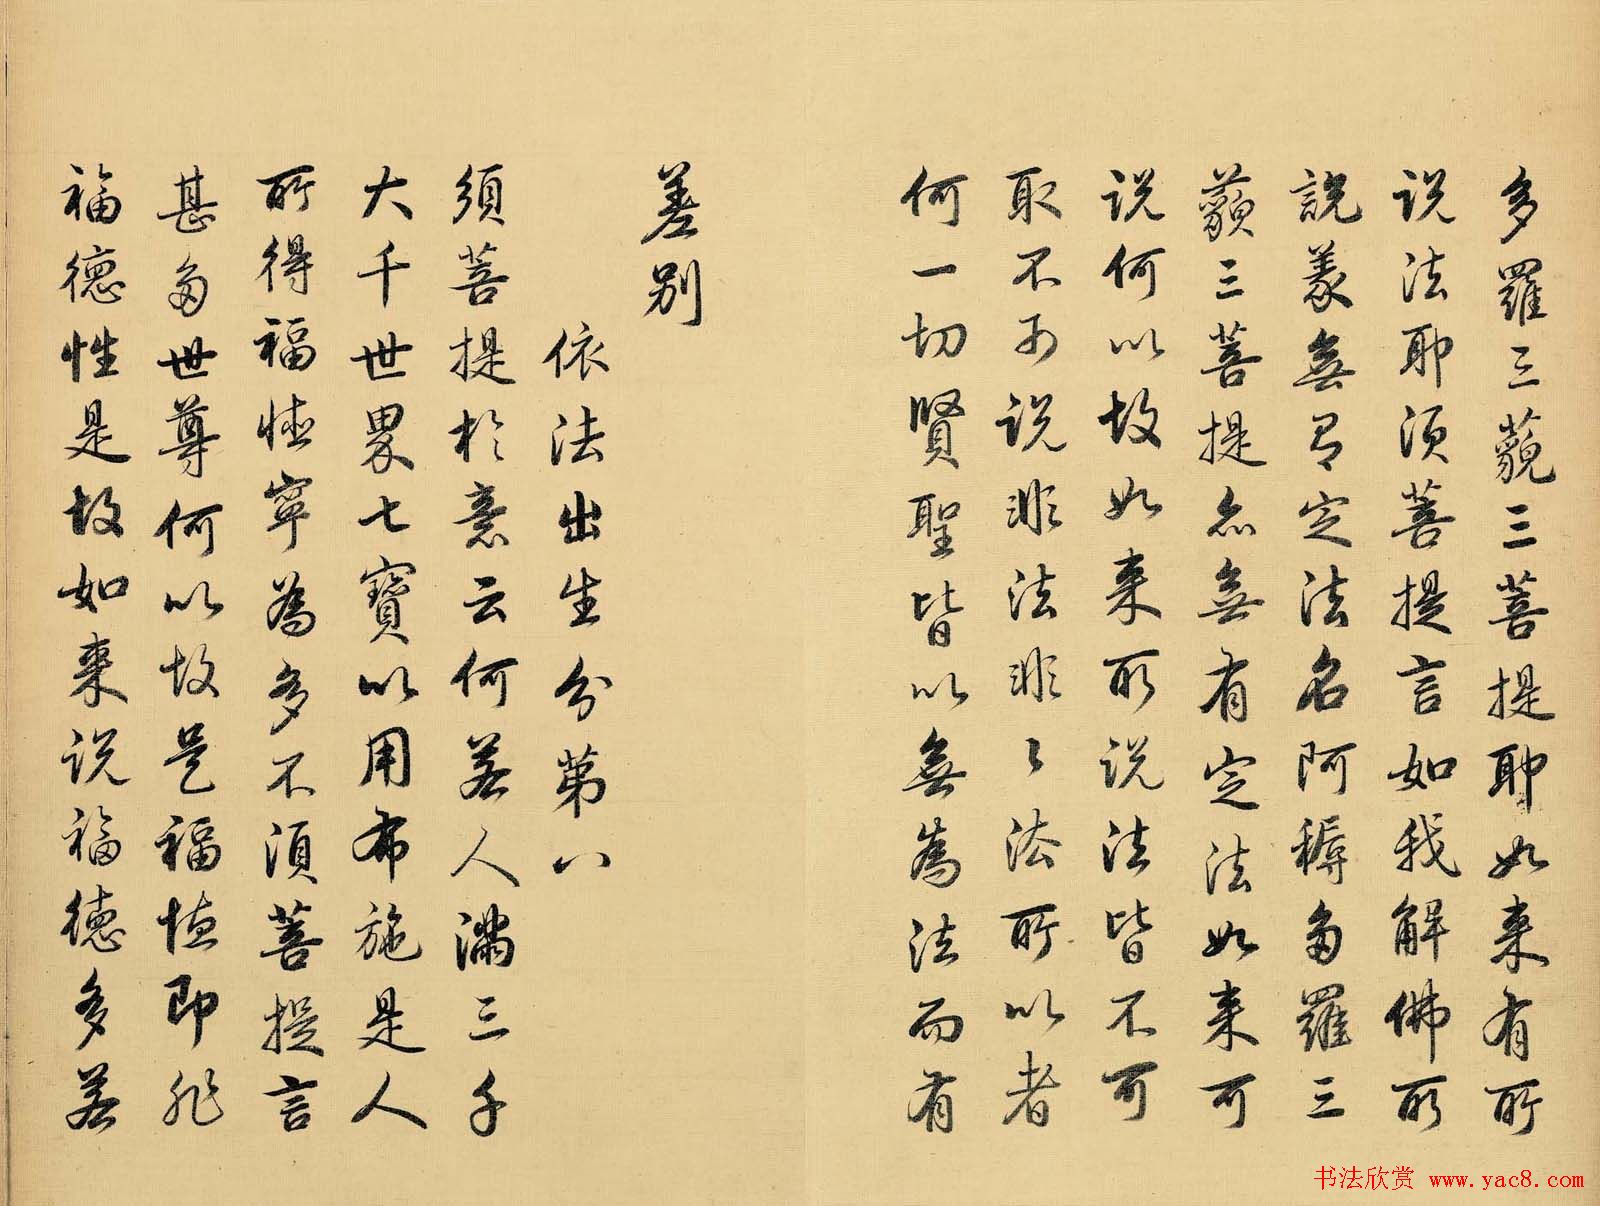 多羅三藐三菩提耶如来有所
说法耶須菩提言如我解佛所
說義無有定法名阿耨多羅三
藐三菩提亦無有定法如来可
说何以故如来所说法皆不可
取不可说非法非〻法所以者
何一切賢聖皆以無為法而有
差别
依法出生分第八
須菩提於意云何若人滿三千
大千世界七寶以用布施是人
所得福德寧為多不須菩提言
甚多世尊何以故是福德即非
福德性是故如来说福德多若
书法欣赏 www.yac8.com